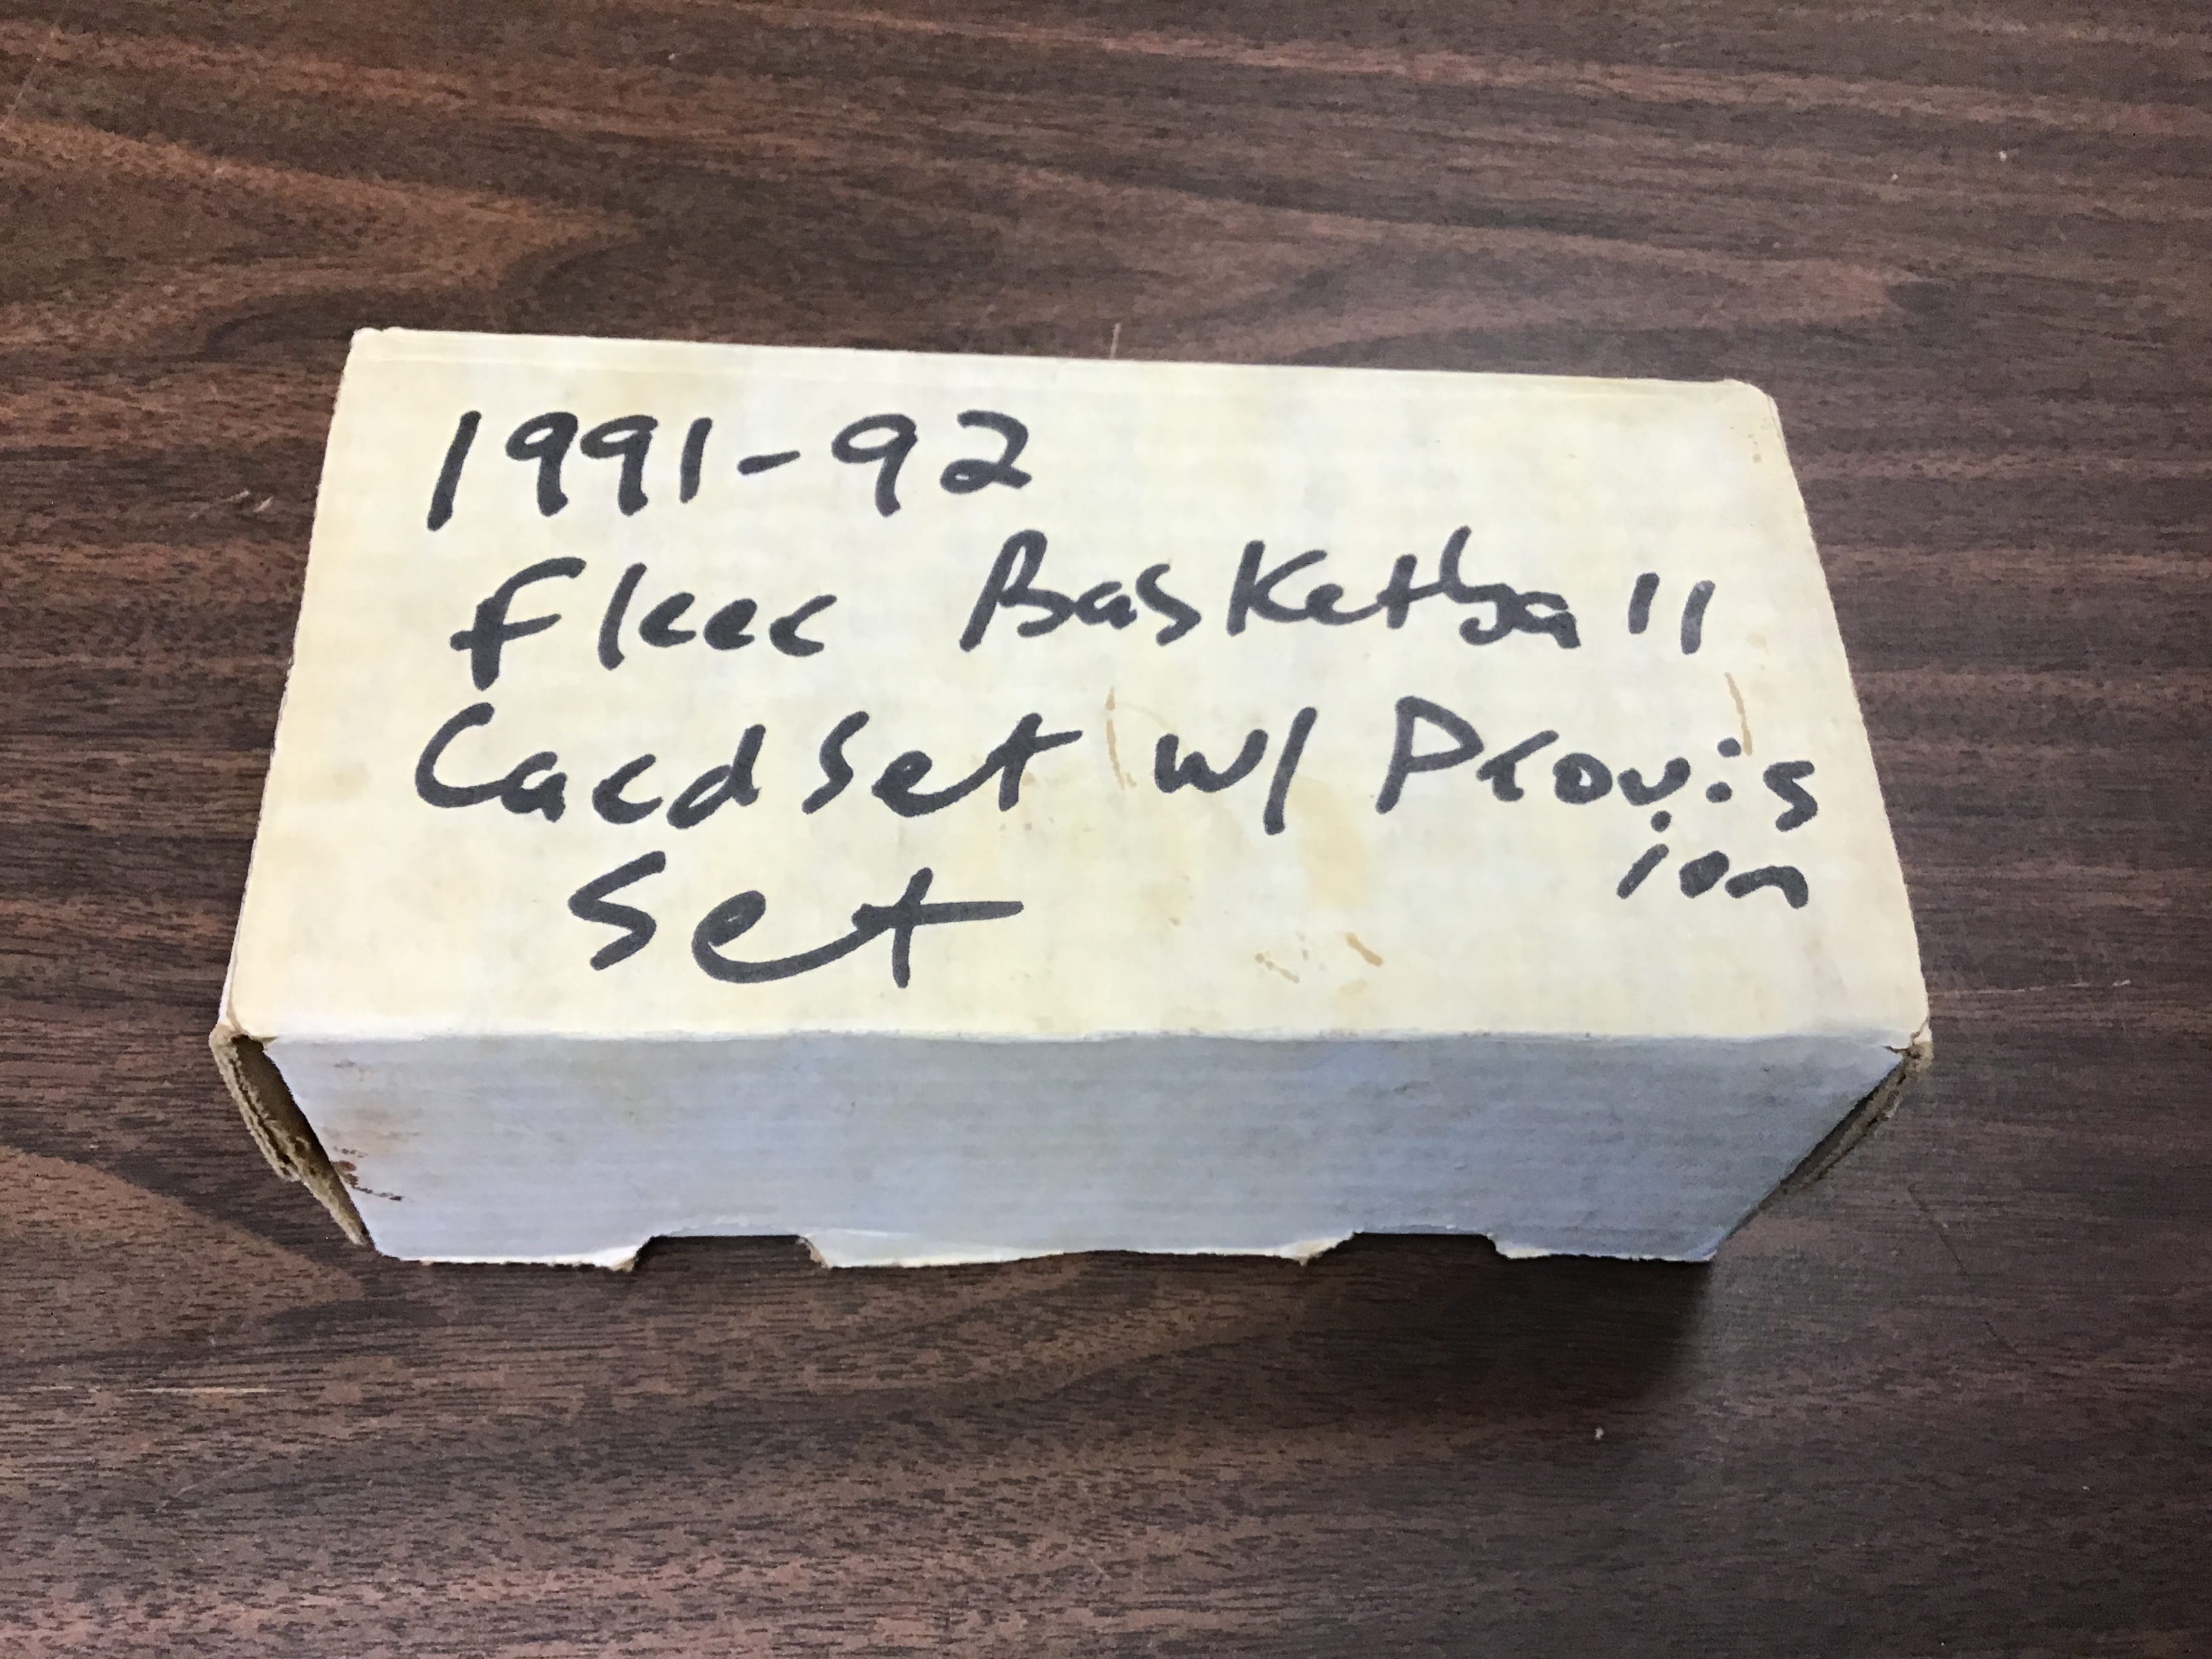 1991-92
Fleer Basketball
Card Set w/ Provis
ion
Set